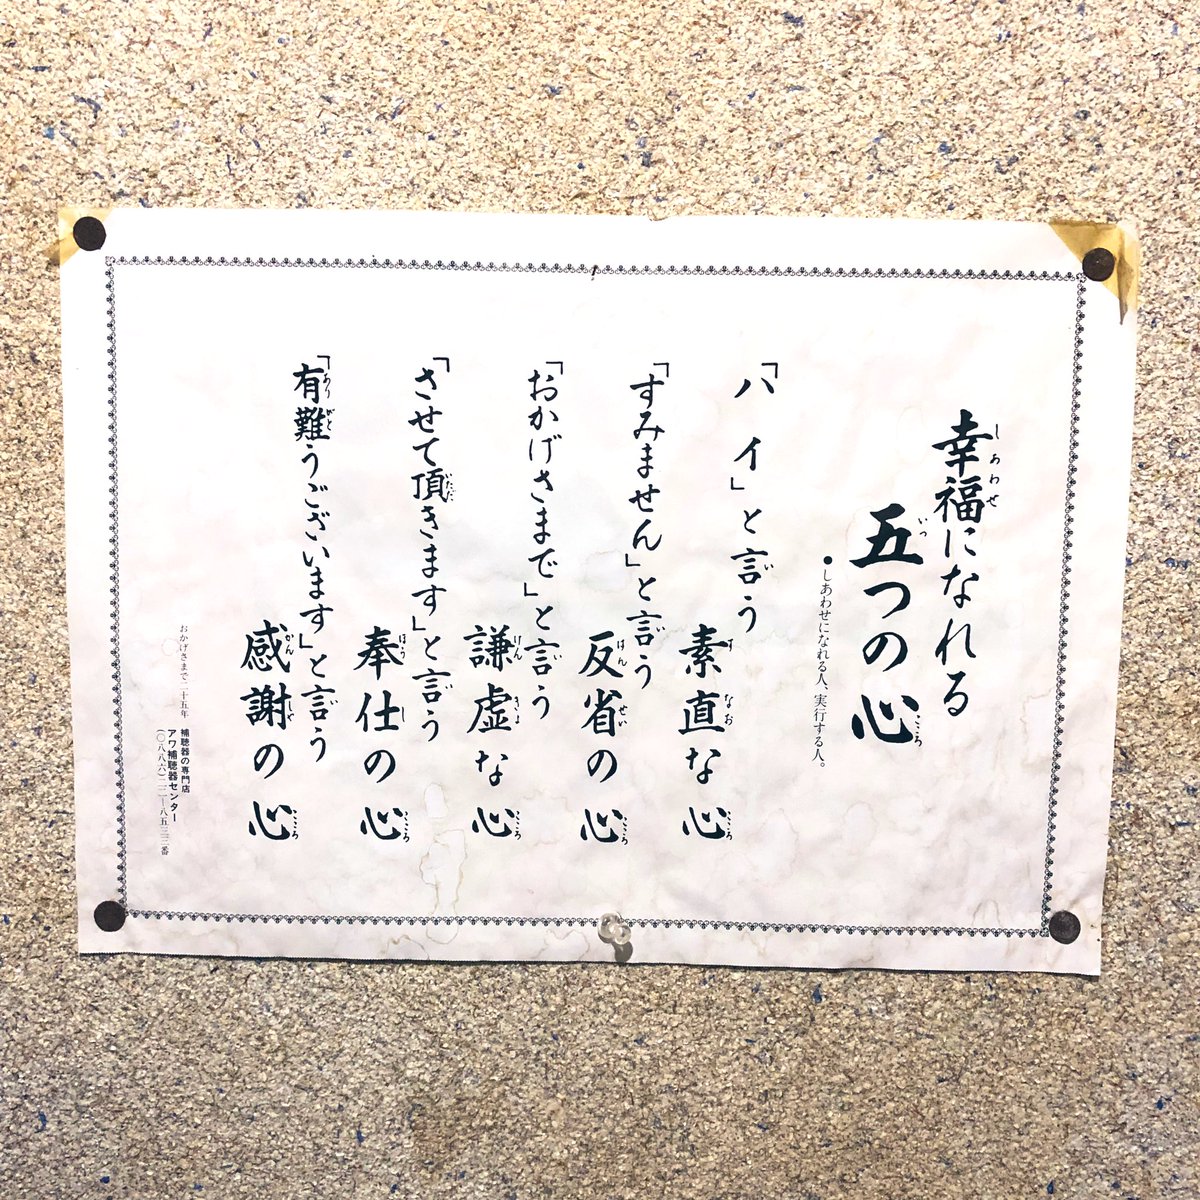 幸福になれる
五つの心
●しあわせになれる人、実行する人。
「ハイ」と言う
素直な心
「すみません」と言う
反省の心
「おかげさまで」と言う
謙虚な心
「させて頂きます」と言う
奉仕の心
「有難うございます」と言う
感謝の心
おかげさまで二十五年
補聴器の専門店
アワ補聴器センター
(〇八八六)二二-八五三三番